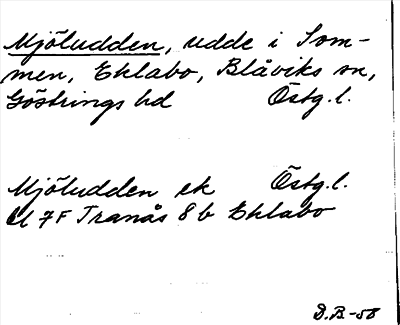 Mjöludden, udde i Som-
men, Eklabo, Blåviks sn,
Göstrings hd Östg.l.
Mjöludden ek Östg.l.
M 7F Tranås 8b Eklabo
D.B.-58